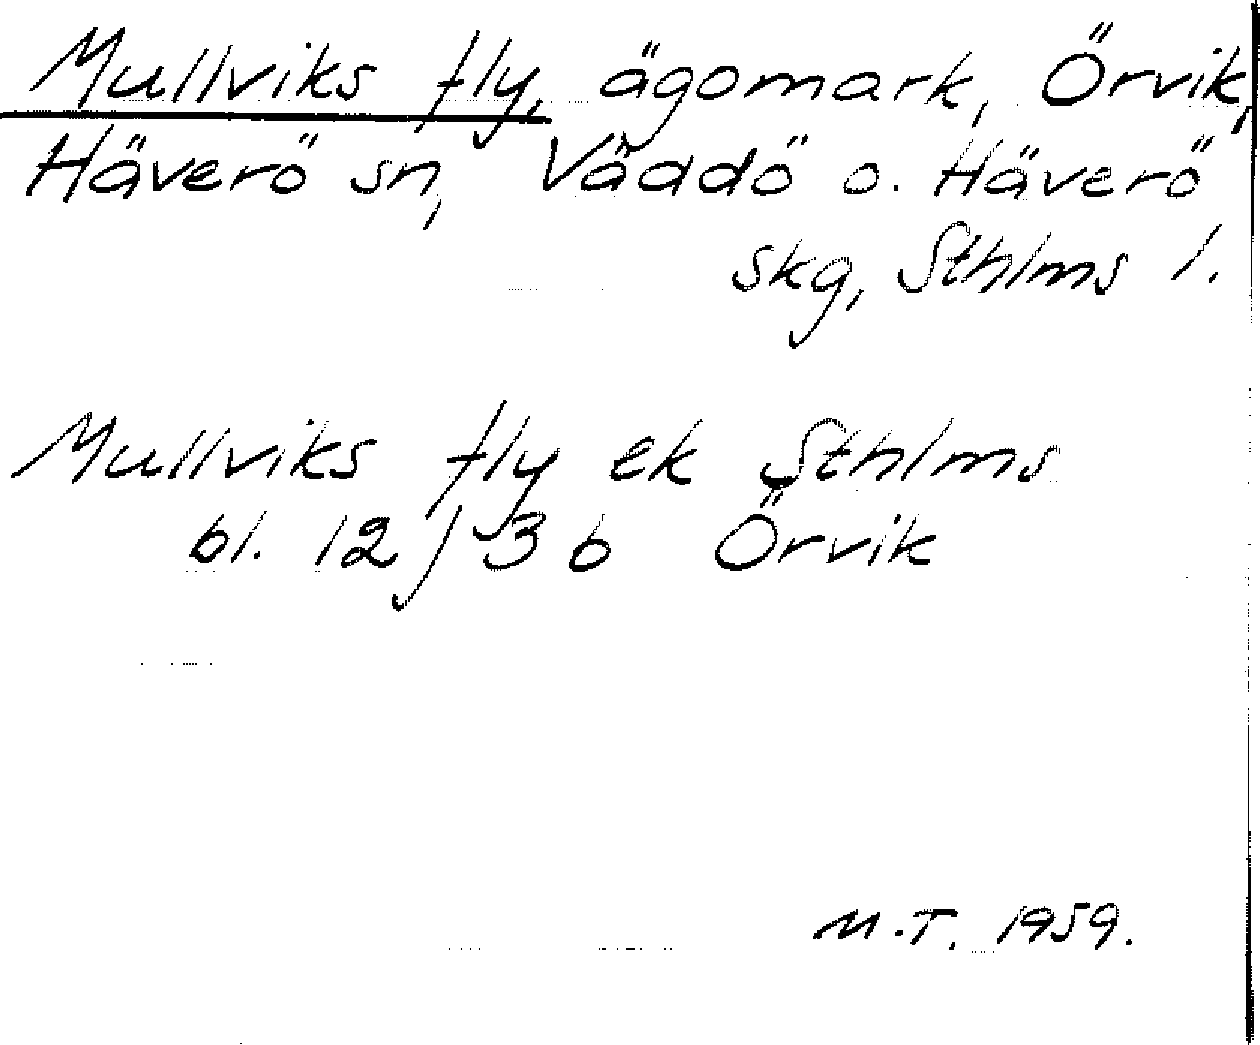 Mullviks fly, ägomark, Örvik,
Häverö sn, Väddö o. Häverö
skg, Sthlms l.
Mullviks fly ek Sthlms
bl. 12 j 3 b Örvik
M.T. 1959.